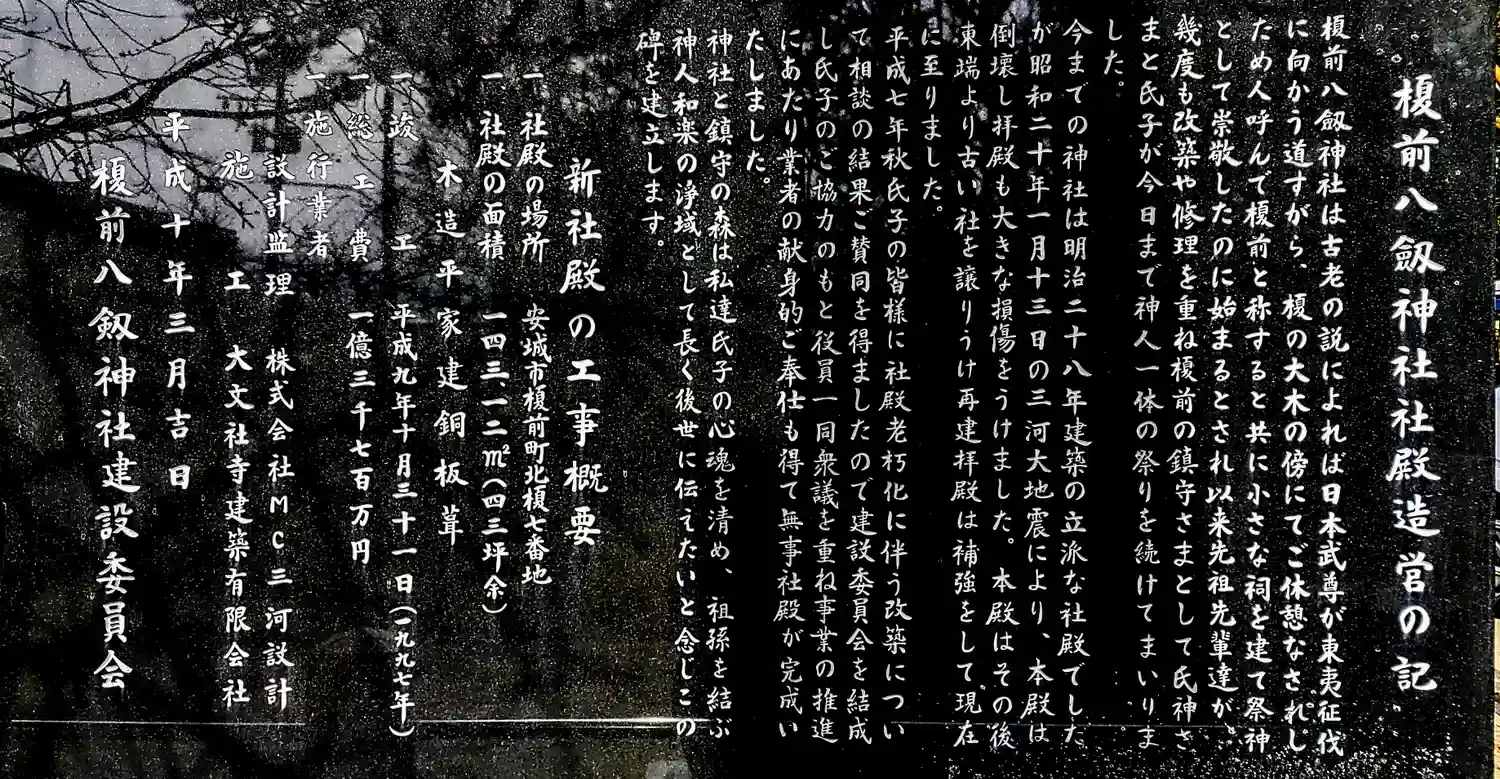 榎前八劔神社社殿造営の記
榎前八劔神社は古老の説によれば日本武尊が東夷征伐
に向かう道すがら、榎の大木の傍にてご休憩なされし
ため人呼んで榎前と称すると共に小さな祠を建て祭神
として崇敬したのに始まるとされ以来先祖先輩達が
幾度も改築や修理を重ね榎前の鎮守さまとして氏神さ
まと氏子が今日まで神人一体の祭りを続けてまいりま
した。
今までの神社は明治二十八年建築の立派な社殿でした
が昭和二十年一月十三日の三河大地震により、本殿は
倒壊し拝殿も大きな損傷をうけました。本殿はその後
東端より古い社を譲りうけ再建拝殿は補強をして現在
に至りました。
平成七年秋氏子の皆様に社殿老朽化に伴う改築につい
て相談の結果ご賛同を得ましたので建設委員会を結成
し氏子のご協力のもと役員一同衆議を重ね事業の推進
にあたり業者の献身的ご奉仕も得て無事社殿が完成い
たしました。
神社と鎮守の森は私達氏子の心魂を清め、祖孫を結ぶ
神人和楽の浄域として長く後世に伝えたいと念じこの
碑を建立します。
新社殿の工事概要
一 社殿の場所 安城市榎前町北榎七番地
一 社殿の面積 一四三、一二㎡(四三坪余)
木造平家建銅板葺
一 竣工 平成九年十月三十一日(一九九七年)
一 総工費 一億三千七百万円
一 施行業者
設計監理 株式会社MC三河設計
施工 大文社寺建築有限会社
平成十年三月吉日
榎前八劔神社建設委員会